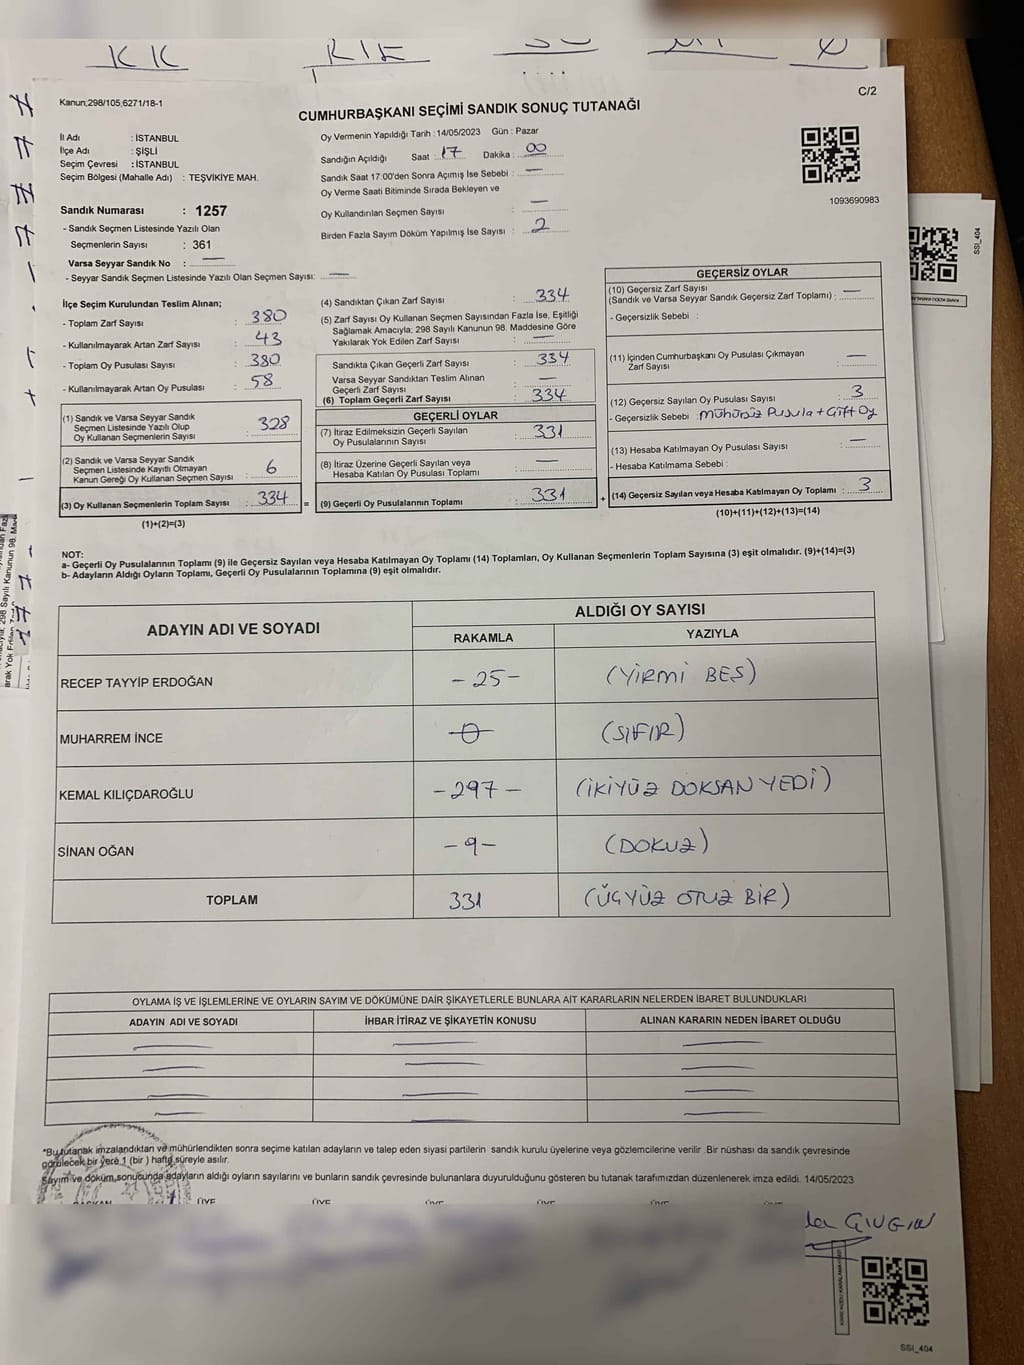 KK RIE SO MI Ø
Kanun;298/105;6271/18-1
C/2
CUMHURBAŞKANI SEÇİMİ SANDIK SONUÇ TUTANAĞI
İl Adı : İSTANBUL
İlçe Adı : ŞİŞLİ
Seçim Çevresi : İSTANBUL
Seçim Bölgesi (Mahalle Adı) : TEŞVİKİYE MAH.
Sandık Numarası : 1257
- Sandık Seçmen Listesinde Yazılı Olan
Seçmenlerin Sayısı : 361
Varsa Seyyar Sandık No : —
- Seyyar Sandık Seçmen Listesinde Yazılı Olan Seçmen Sayısı: —
Oy Vermenin Yapıldığı Tarih : 14/05/2023 Gün : Pazar
Sandığın Açıldığı Saat : 17 Dakika : 00
Sandık Saat 17:00'den Sonra Açımış İse Sebebi : —
Oy Verme Saati Bitiminde Sırada Bekleyen ve
Oy Kullandırılan Seçmen Sayısı : —
Birden Fazla Sayım Döküm Yapılmış İse Sayısı : 2
1093690983
İlçe Seçim Kurulundan Teslim Alınan;
- Toplam Zarf Sayısı : 380
- Kullanılmayarak Artan Zarf Sayısı : 43
- Toplam Oy Pusulası Sayısı : 380
- Kullanılmayarak Artan Oy Pusulası : 58
(1) Sandık ve Varsa Seyyar Sandık
Seçmen Listesinde Yazılı Olup
Oy Kullanan Seçmenlerin Sayısı : 328
(2) Sandık ve Varsa Seyyar Sandık
Seçmen Listesinde Kayıtlı Olmayan
Kanun Gereği Oy Kullanan Seçmen Sayısı : 6
(3) Oy Kullanan Seçmenlerin Toplam Sayısı : 334 =
(1)+(2)=(3)
(4) Sandıktan Çıkan Zarf Sayısı : 334
(5) Zarf Sayısı Oy Kullanan Seçmen Sayısından Fazla İse, Eşitliği
Sağlamak Amacıyla; 298 Sayılı Kanunun 98. Maddesine Göre
Yakılarak Yok Edilen Zarf Sayısı : —
Sandıkta Çıkan Geçerli Zarf Sayısı : 334
Varsa Seyyar Sandıktan Teslim Alınan
Geçerli Zarf Sayısı : —
(6) Toplam Geçerli Zarf Sayısı : 334
GEÇERLİ OYLAR
(7) İtiraz Edilmeksizin Geçerli Sayılan
Oy Pusulalarının Sayısı : 331
(8) İtiraz Üzerine Geçerli Sayılan veya
Hesaba Katılan Oy Pusulası Toplamı : —
(9) Geçerli Oy Pusulalarının Toplamı : 331 +
GEÇERSİZ OYLAR
(10) Geçersiz Zarf Sayısı
(Sandık ve Varsa Seyyar Sandık Geçersiz Zarf Toplamı) : —
- Geçersizlik Sebebi :
(11) İçinden Cumhurbaşkanı Oy Pusulası Çıkmayan
Zarf Sayısı : —
(12) Geçersiz Sayılan Oy Pusulası Sayısı : 3
- Geçersizlik Sebebi : Mühürsüz Pusula + Çift Oy
(13) Hesaba Katılmayan Oy Pusulası Sayısı : —
- Hesaba Katılmama Sebebi :
(14) Geçersiz Sayılan veya Hesaba Katılmayan Oy Toplamı : 3
(10)+(11)+(12)+(13)=(14)
NOT:
a- Geçerli Oy Pusulalarının Toplamı (9) ile Geçersiz Sayılan veya Hesaba Katılmayan Oy Toplamı (14) Toplamları, Oy Kullanan Seçmenlerin Toplam Sayısına (3) eşit olmalıdır. (9)+(14)=(3)
b- Adayların Aldığı Oyların Toplamı, Geçerli Oy Pusulalarının Toplamına (9) eşit olmalıdır.
ADAYIN ADI VE SOYADI ALDIĞI OY SAYISI
RAKAMLA YAZIYLA
RECEP TAYYİP ERDOĞAN - 25 - (YİRMİ BEŞ)
MUHARREM İNCE 0 (SIFIR)
KEMAL KILIÇDAROĞLU - 297 - (İKİYÜZ DOKSAN YEDİ)
SİNAN OĞAN - 9 - (DOKUZ)
TOPLAM 331 (ÜÇYÜZ OTUZ BİR)
OYLAMA İŞ VE İŞLEMLERİNE VE OYLARIN SAYIM VE DÖKÜMÜNE DAİR ŞİKAYETLERLE BUNLARA AİT KARARLARIN NELERDEN İBARET BULUNDUKLARI
ADAYIN ADI VE SOYADI İHBAR İTİRAZ VE ŞİKAYETİN KONUSU ALINAN KARARIN NEDEN İBARET OLDUĞU
*Bu tutanak imzalandıktan ve mühürlendikten sonra seçime katılan adayların ve talep eden siyasi partilerin sandık kurulu üyelerine veya gözlemcilerine verilir .Bir nüshası da sandık çevresinde
görülecek bir yere 1 (bir ) hafta süreyle asılır.
Sayım ve döküm sonucunda adayların aldığı oyların sayılarını ve bunların sandık çevresinde bulunanlara duyurulduğunu gösteren bu tutanak tarafımızdan düzenlenerek imza edildi. 14/05/2023
BAŞKAN ÜYE ÜYE ÜYE ÜYE ÜYE
SSI_404
SSI_404